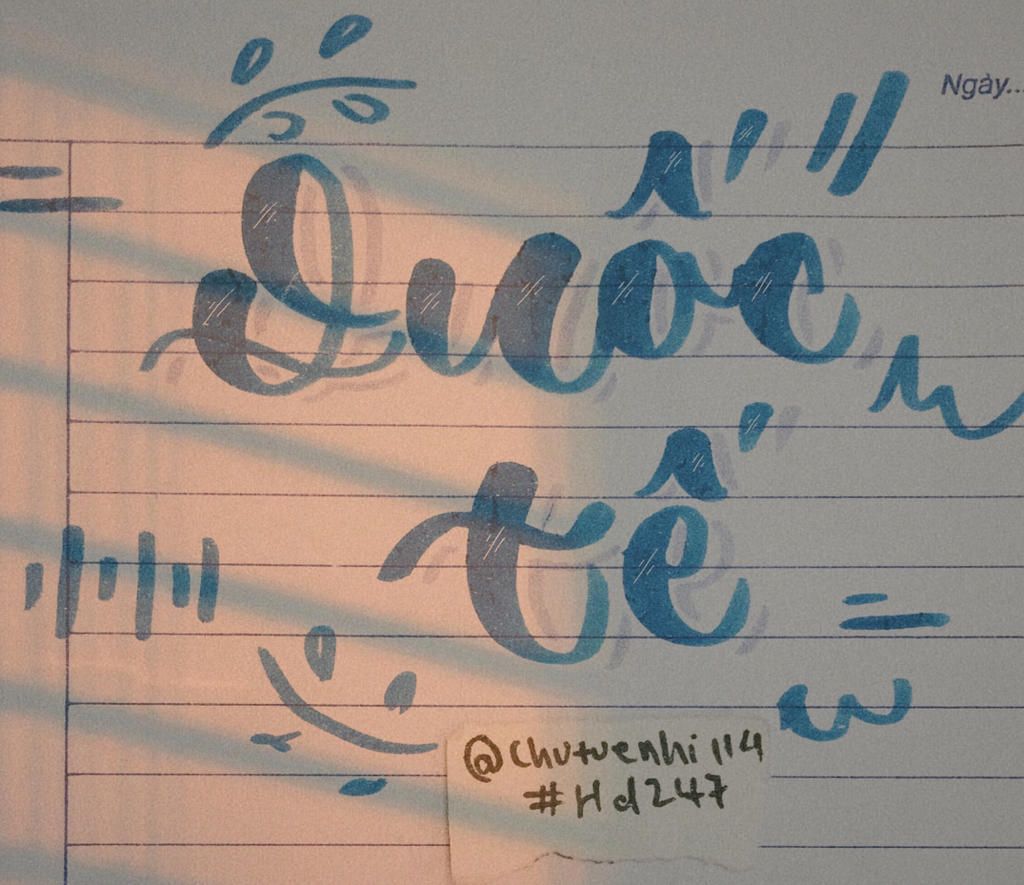 Ngày...
Quốc
tế
@chutuenhi 114
#Hd247